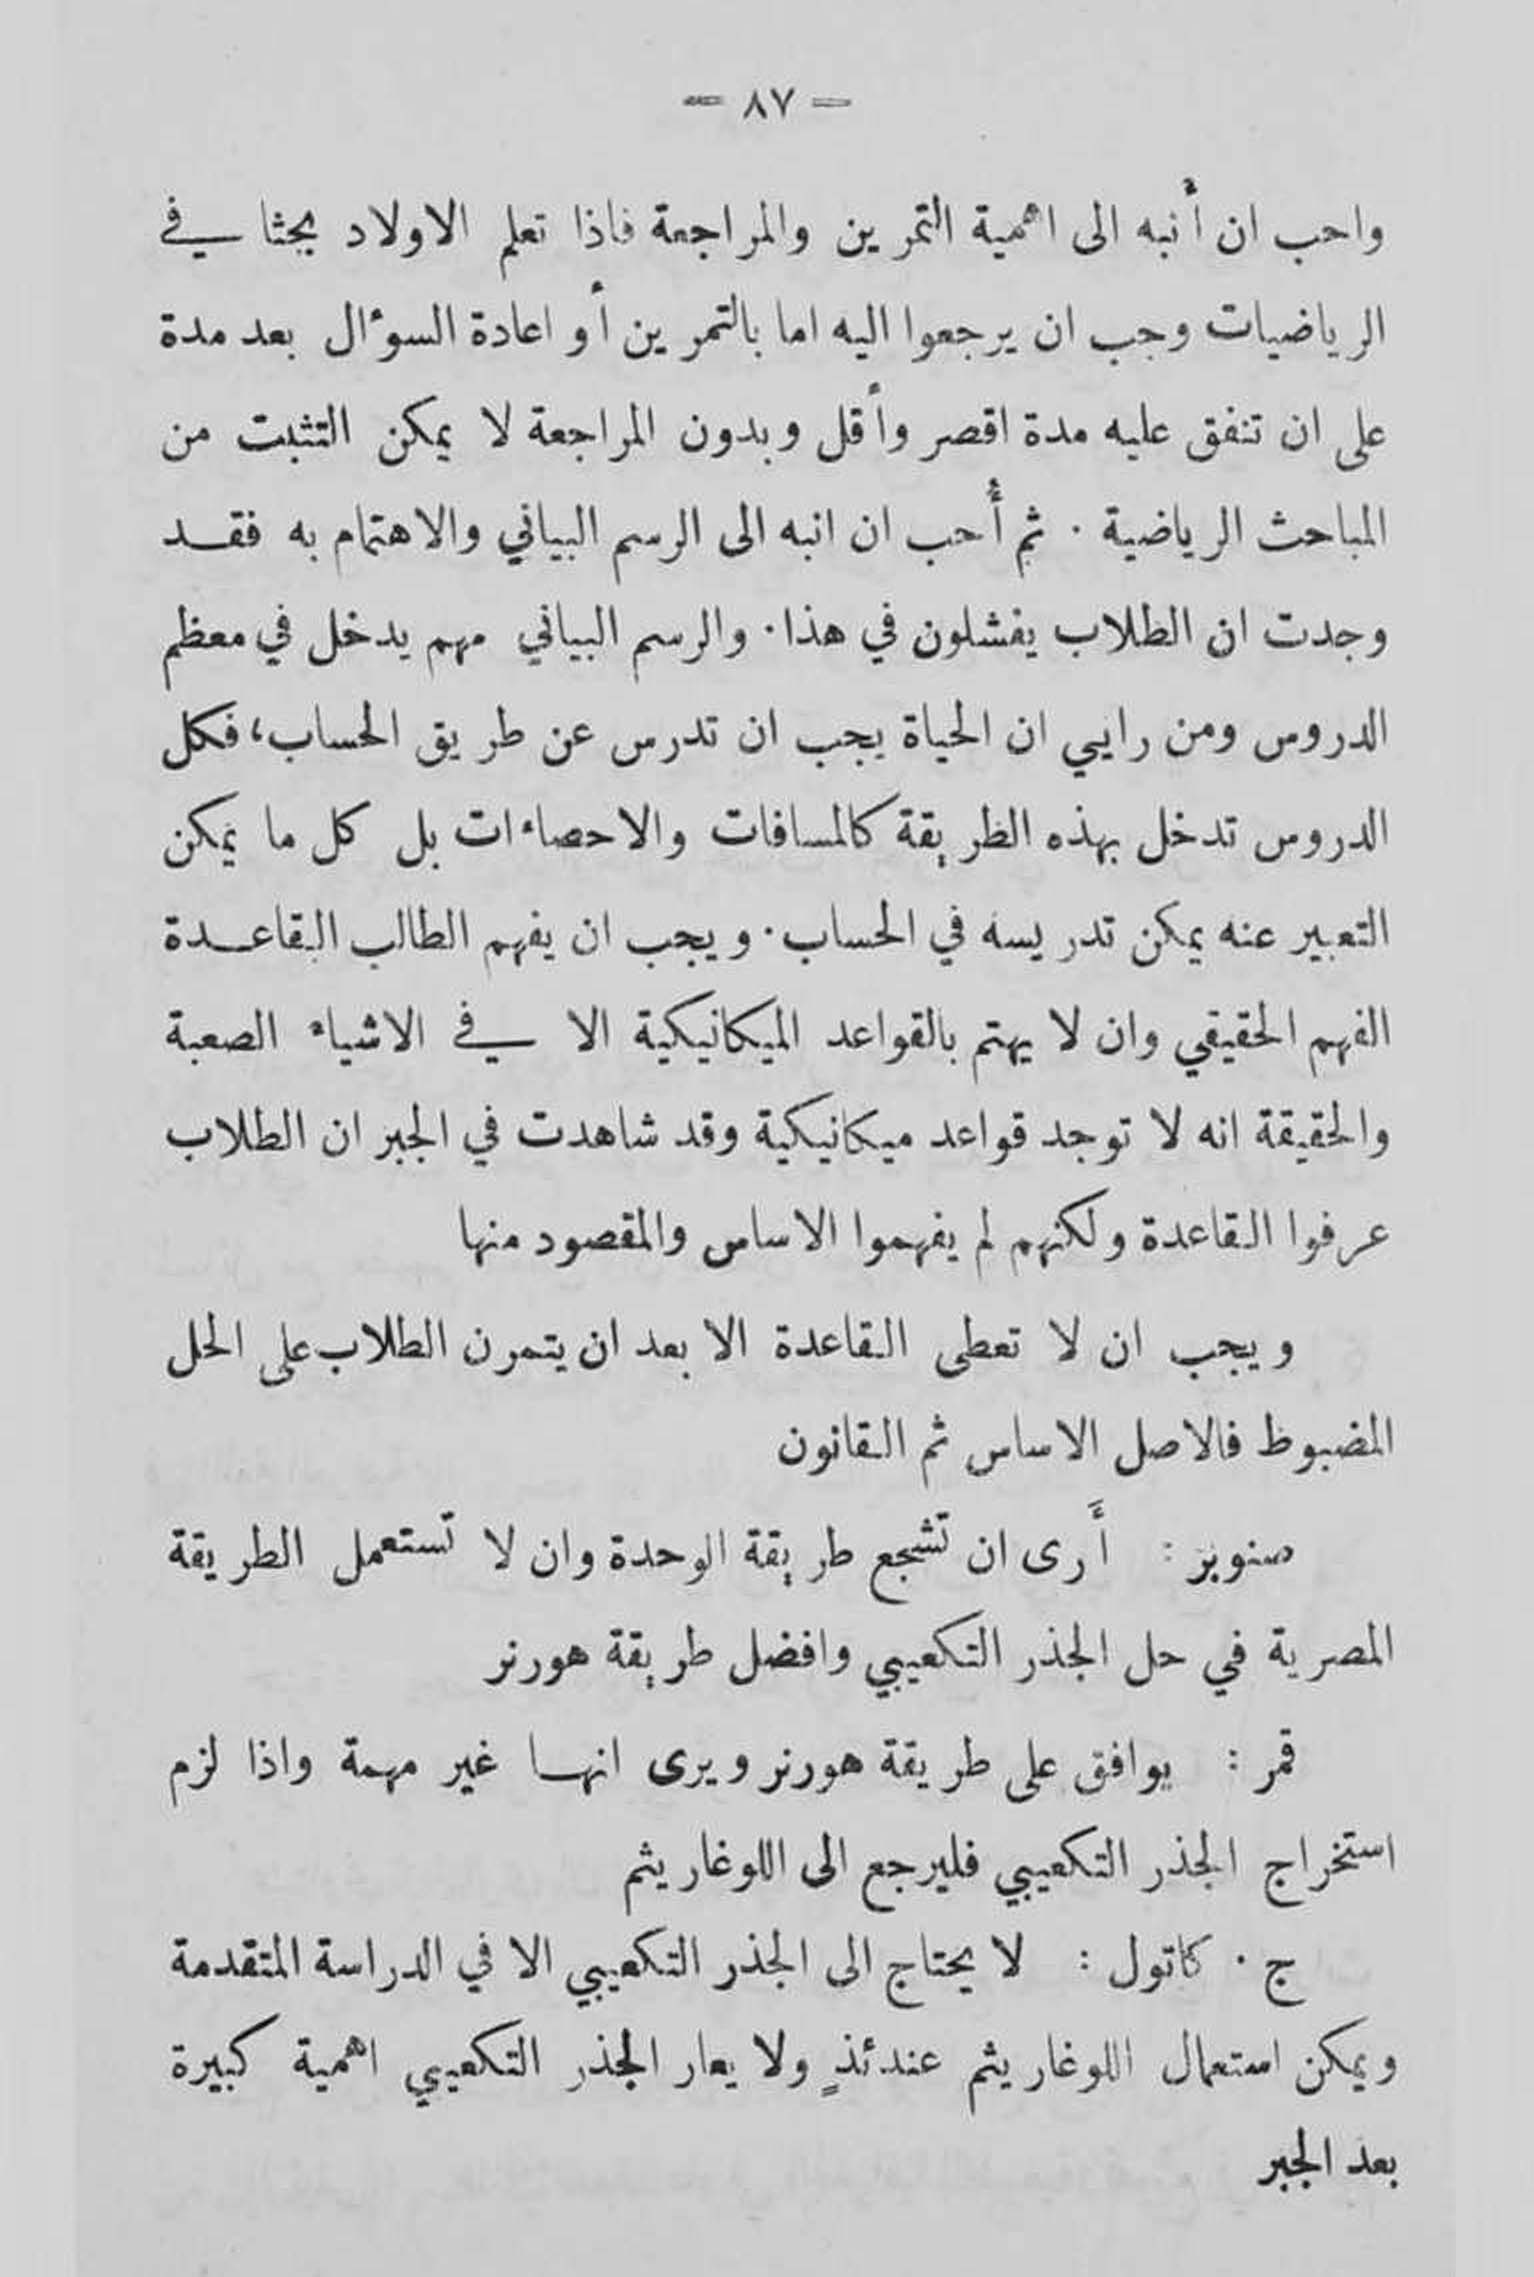 — ٨٧ —
واحب ان أنبه الى اهمية التمرين والمراجعة فاذا تعلم الاولاد بحثا في
الرياضيات وجب ان يرجعوا اليه اما بالتمرين أو اعادة السؤال بعد مدة
على ان تنفق عليه مدة اقصر وأقل وبدون المراجعة لا يمكن التثبت من
المباحث الرياضية . ثم أُحب ان انبه الى الرسم البياني والاهتمام به فقد
وجدت ان الطلاب يفشلون في هذا . والرسم البياني مهم يدخل في معظم
الدروس ومن رايي ان الحياة يجب ان تدرس عن طريق الحساب، فكل
الدروس تدخل بهذه الطريقة كالمسافات والاحصاءات بل كل ما يمكن
التعبير عنه يمكن تدريسه في الحساب . ويجب ان يفهم الطالب القاعدة
الفهم الحقيقي وان لا يهتم بالقواعد الميكانيكية الا في الاشياء الصعبة
والحقيقة انه لا توجد قواعد ميكانيكية وقد شاهدت في الجبر ان الطلاب
عرفوا القاعدة ولكنهم لم يفهموا الاساس والمقصود منها
ويجب ان لا تعطى القاعدة الا بعد ان يتمرن الطلاب على الحل
المضبوط فالاصل الاساس ثم القانون
صنوبر : أَرى ان تشجع طريقة الوحدة وان لا تستعمل الطريقة
المصرية في حل الجذر التكعيبي وافضل طريقة هورنر
قمر : يوافق على طريقة هورنر ويرى انها غير مهمة واذا لزم
استخراج الجذر التكعيبي فليرجع الى اللوغاريثم
ج . كاتول : لا يحتاج الى الجذر التكعيبي الا في الدراسة المتقدمة
ويمكن استعمال اللوغاريثم عندئذٍ ولا يعار الجذر التكعيبي اهمية كبيرة
بعد الجبر